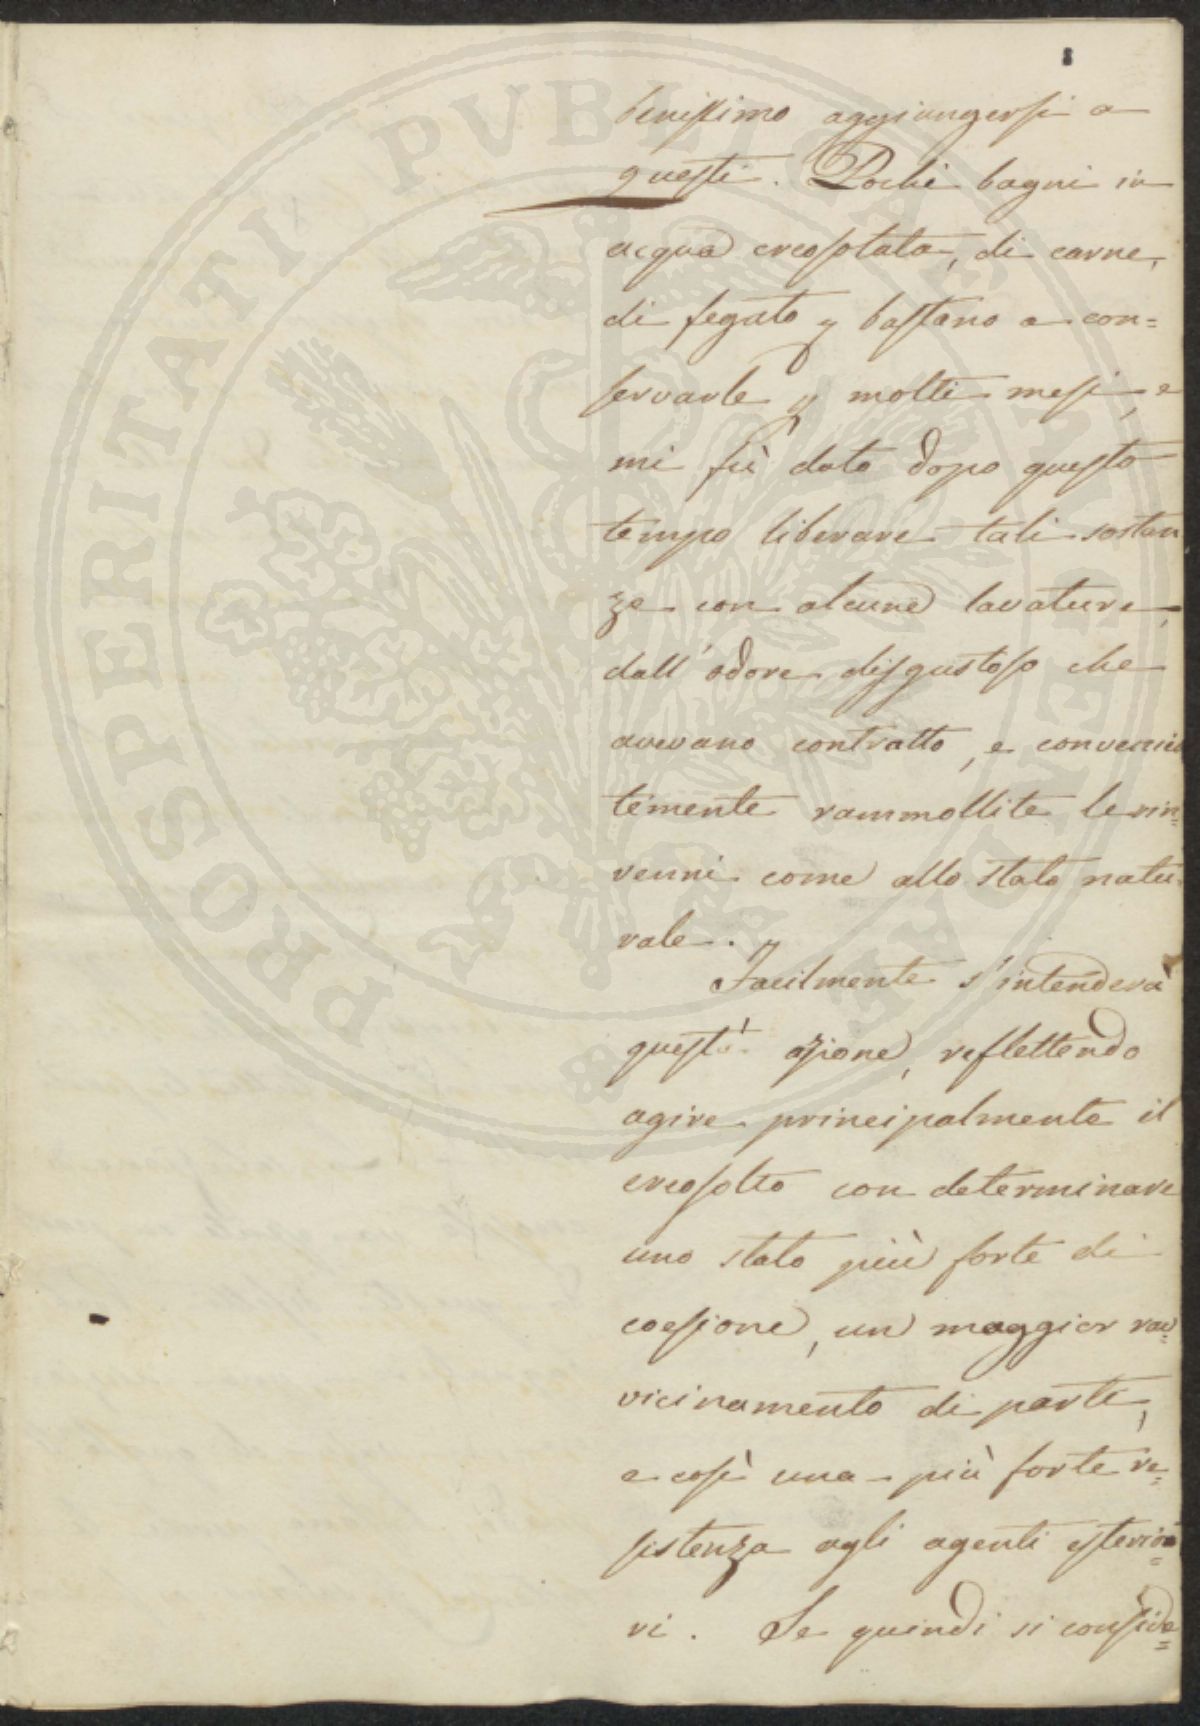 PROSPERITATI PVBLICAE AVGENDAE
benissimo aggiungersi a
questi. Pochi bagni in
acqua creosotata, di carne,
di fegato p bastano a con=
servarle p molti mesi, e
mi fù dato dopo questo
tempo liberare tali sostan
ze con alcune lavature,
dall'odore disgustoso che
avevano contratto, e convenien
temente rammollite le rin=
venni come allo stato natu=
rale.
Facilmente s'intenderà
quest' azione, reflettendo
agire principalmente il
creosoto con determinare
uno stato più forte di
coesione, un maggior rav=
vicinamento di parti,
e così una più forte re=
sistenza agli agenti esterio=
ri. Se quindi si conside=